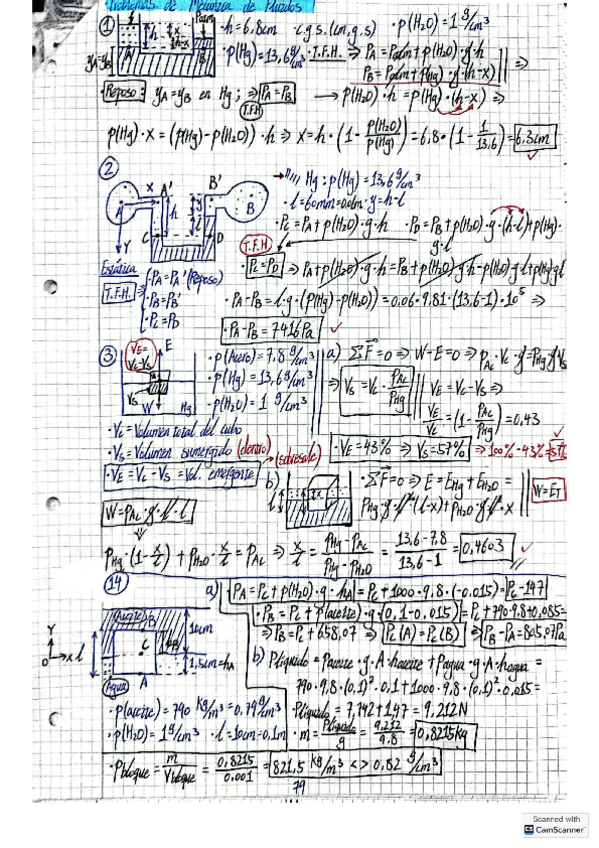 Problemas de Mecánica de Fluidos
① · h = 6,8cm c.g.s. (cm,g,s) · ρ(H₂O) = 1 g/cm³
· ρ(Hg) = 13,6 g/cm³ · T.F.H ⇒ PA = Patm + ρ(H₂O)·g·h
PB = Patm + ρ(Hg)·g·(h-x) ⇒
yA = yB
· Reposo: yA = yB en Hg; ⇒ PA = PB → ρ(H₂O)·h = ρ(Hg)·(h-x) ⇒
T.F.H
ρ(Hg)·x = (ρ(Hg) - ρ(H₂O))·h ⇒ x = h·(1 - ρ(H₂O)/ρ(Hg)) = 6,8·(1 - 1/13,6) = 6,3cm
② A' B' → Hg: ρ(Hg) = 13,6 g/cm³
· l = 60mm = 0,06m · y = h-l
· PC = PA + ρ(H₂O)·g·h · PD = PB + ρ(H₂O)·g·(h-l) + ρ(Hg)·g·l
T.F.H
PC = PD ⇒ PA + ρ(H₂O)·g·h = PB + ρ(H₂O)·g·h - ρ(H₂O)·g·l + ρ(Hg)·g·l
Estática
T.F.H. ⇒ · PA = PA' (Reposo)
· PB = PB'
· PC = PD
· PA - PB = l·g·(ρ(Hg) - ρ(H₂O)) = 0,06·9,81·(13,6-1)·10³ ⇒
· PA - PB = 7416 Pa
③ VE = VC - VS E
· ρ(Acero) = 7,8 g/cm³
· ρ(Hg) = 13,6 g/cm³
· ρ(H₂O) = 1 g/cm³
VS W Hg
a) ΣF = 0 ⇒ W - E = 0 ⇒ ρAc·VC·g = ρHg·g·VS
⇒ VS = VC·ρAc/ρHg VE = VC - VS ⇒
VE/VC = (1 - ρAc/ρHg) = 0,43
· VE = 43% ⇒ VS = 57% ⇒ 100% - 43% = 57%
· VC = Volumen total del cubo
· VS = Volumen sumergido (dentro)
· VE = VC - VS = Vol. emergente → (sobresale)
b) · ΣF = 0 ⇒ E = EHg + EH₂O =
ρHg·g·l²·(l-x) + ρH₂O·g·l²·x W = ET
W = ρAc·g·l²·l
ρHg·(1 - x/l) + ρH₂O·x/l = ρAc ⇒ x/l = (ρHg - ρAc)/(ρHg - ρH₂O) = (13,6 - 7,8)/(13,6 - 1) = 0,4603
⑭ a) PA = PC + ρ(H₂O)·g·hA = PC + 1000·9,8·(-0,015) = PC - 147
· PB = PC + ρ(aceite)·g·(0,1 - 0,015) = PC + 790·9,8·0,085 =
⇒ PB = PC + 658,07 ⇒ PC(A) = PC(B) ⇒ PB - PA = 805,07Pa
Aceite B 10cm
C
1,5cm = hA
A
Agua
b) Plíquido = ρaceite·g·A·haceite + ρagua·g·A·hagua =
790·9,8·(0,1)²·0,1 + 1000·9,8·(0,1)²·0,015 =
· ρ(aceite) = 790 kg/m³ = 0,79 g/cm³
· ρ(H₂O) = 1 g/cm³ · l = 10cm = 0,1m
Plíquido = 7,742 + 1,47 = 9,212N
· m = Plíquido/g = 9,212/9,8 = 0,8215kg
· ρbloque = m/Vbloque = 0,8215/0,001 = 821,5 kg/m³ <> 0,82 g/cm³
79
Scanned with
CamScanner